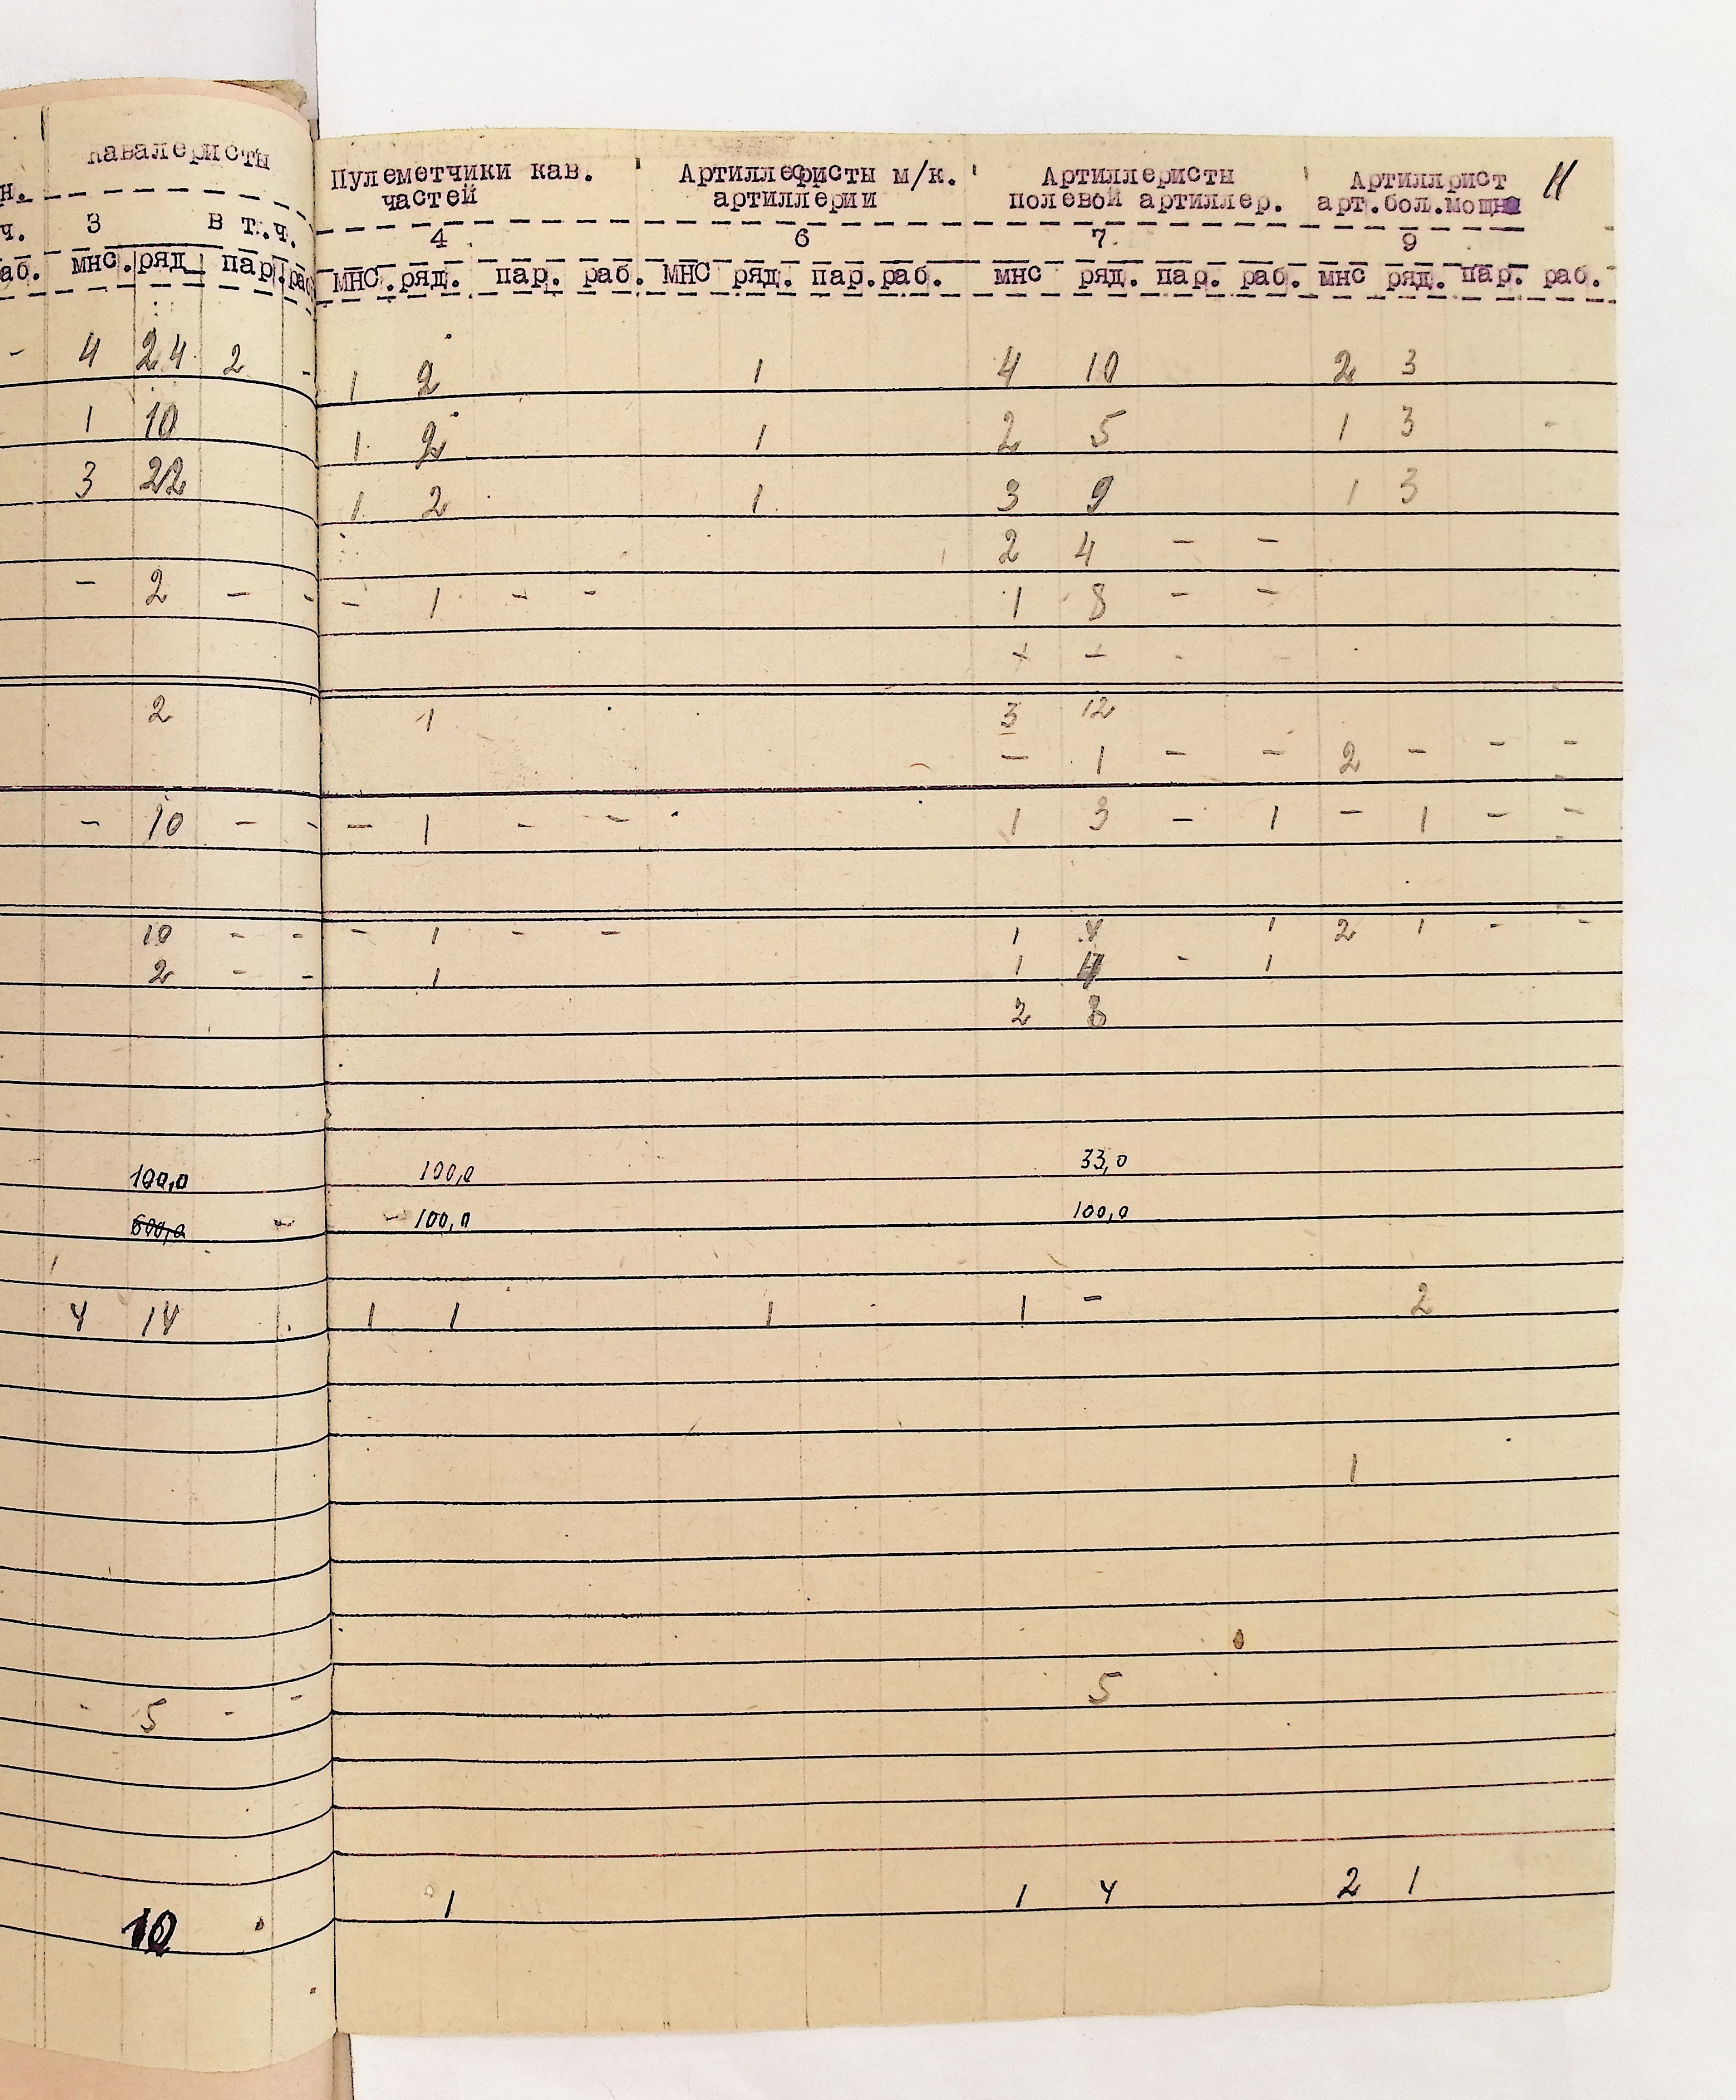 кавалеристы Пулеметчики кав. Артиллеристы м/к. Артиллеристы Артиллрист 11
н. частей артиллерии полевой артиллер. арт.бол.мощн
ч. 3 в т.ч. 4 6 7 9
аб. мнс. ряд пар. раб мнс. ряд. пар. раб. мнс ряд. пар. раб. мнс ряд. пар. раб. мнс ряд. пар. раб.
- 4 24 2 - 1 2 1 4 10 2 3
1 10 1 2 1 2 5 1 3 -
3 22 1 2 1 3 9 1 3
2 4 - -
- 2 - - - 1 - - 1 8 - -
+ - - -
2 1 3 12
- 1 - - 2 - - -
- 10 - - - 1 - - 1 3 - 1 - 1 - -
10 - - - 1 - - 1 4 1 2 1 - -
2 - - 1 1 4 - 1
2 8
100,0 100,0 33,0
600,0 - - 100,0 100,0
4 14 1 1 1 1 - 2
1
- 5 - - 5
10 1 1 4 2 1